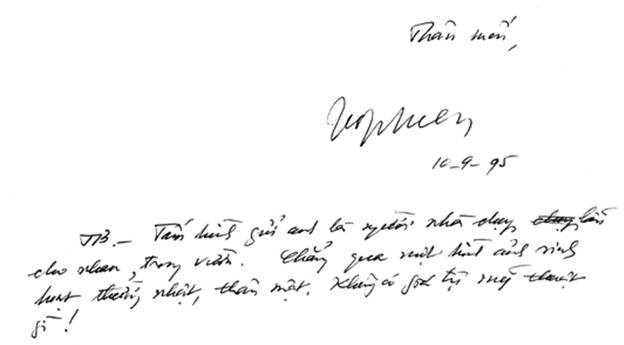 Thân mến,
Võ Phiến
10-9-95
TB. — Tấm hình gửi anh là người nhà chụp lẫn
cho nhau, trong vườn. Chẳng qua một hình ảnh sinh
hoạt thường nhật, thân mật. Không có giá trị mỹ thuật
gì!